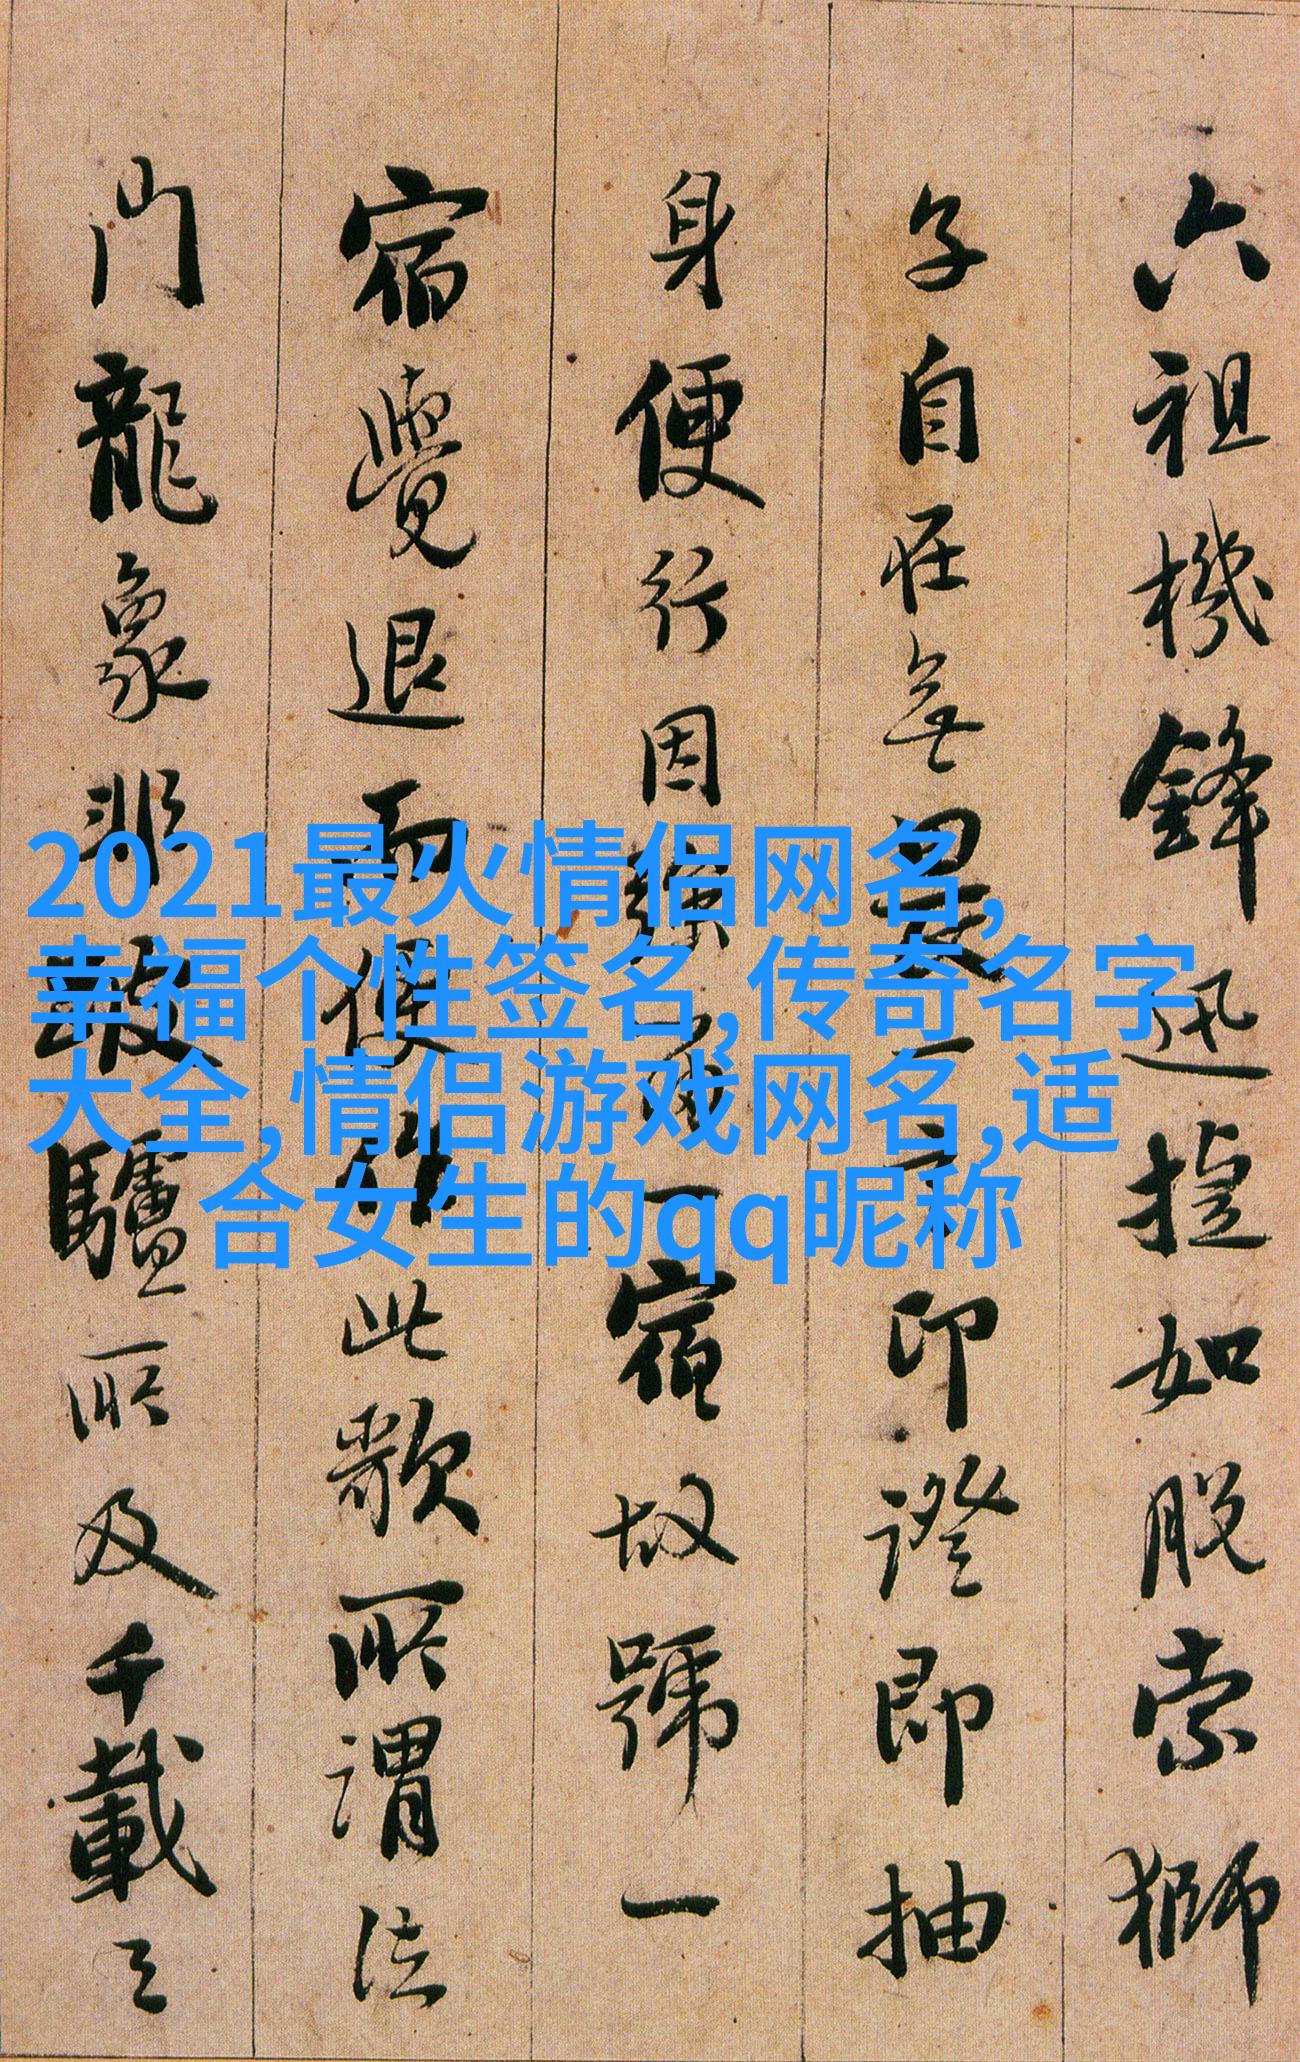 六祖機鋒迅捷如脫索獅
子自在無畏一言印證即抽
身便行因強名一宿故號一
宿覺退而便作此歌所謂法
門龍象非跛驢所及千載之
2021最火情侣网名,
幸福个性签名,传奇名字
大全,情侣游戏网名,适
合女生的qq昵称